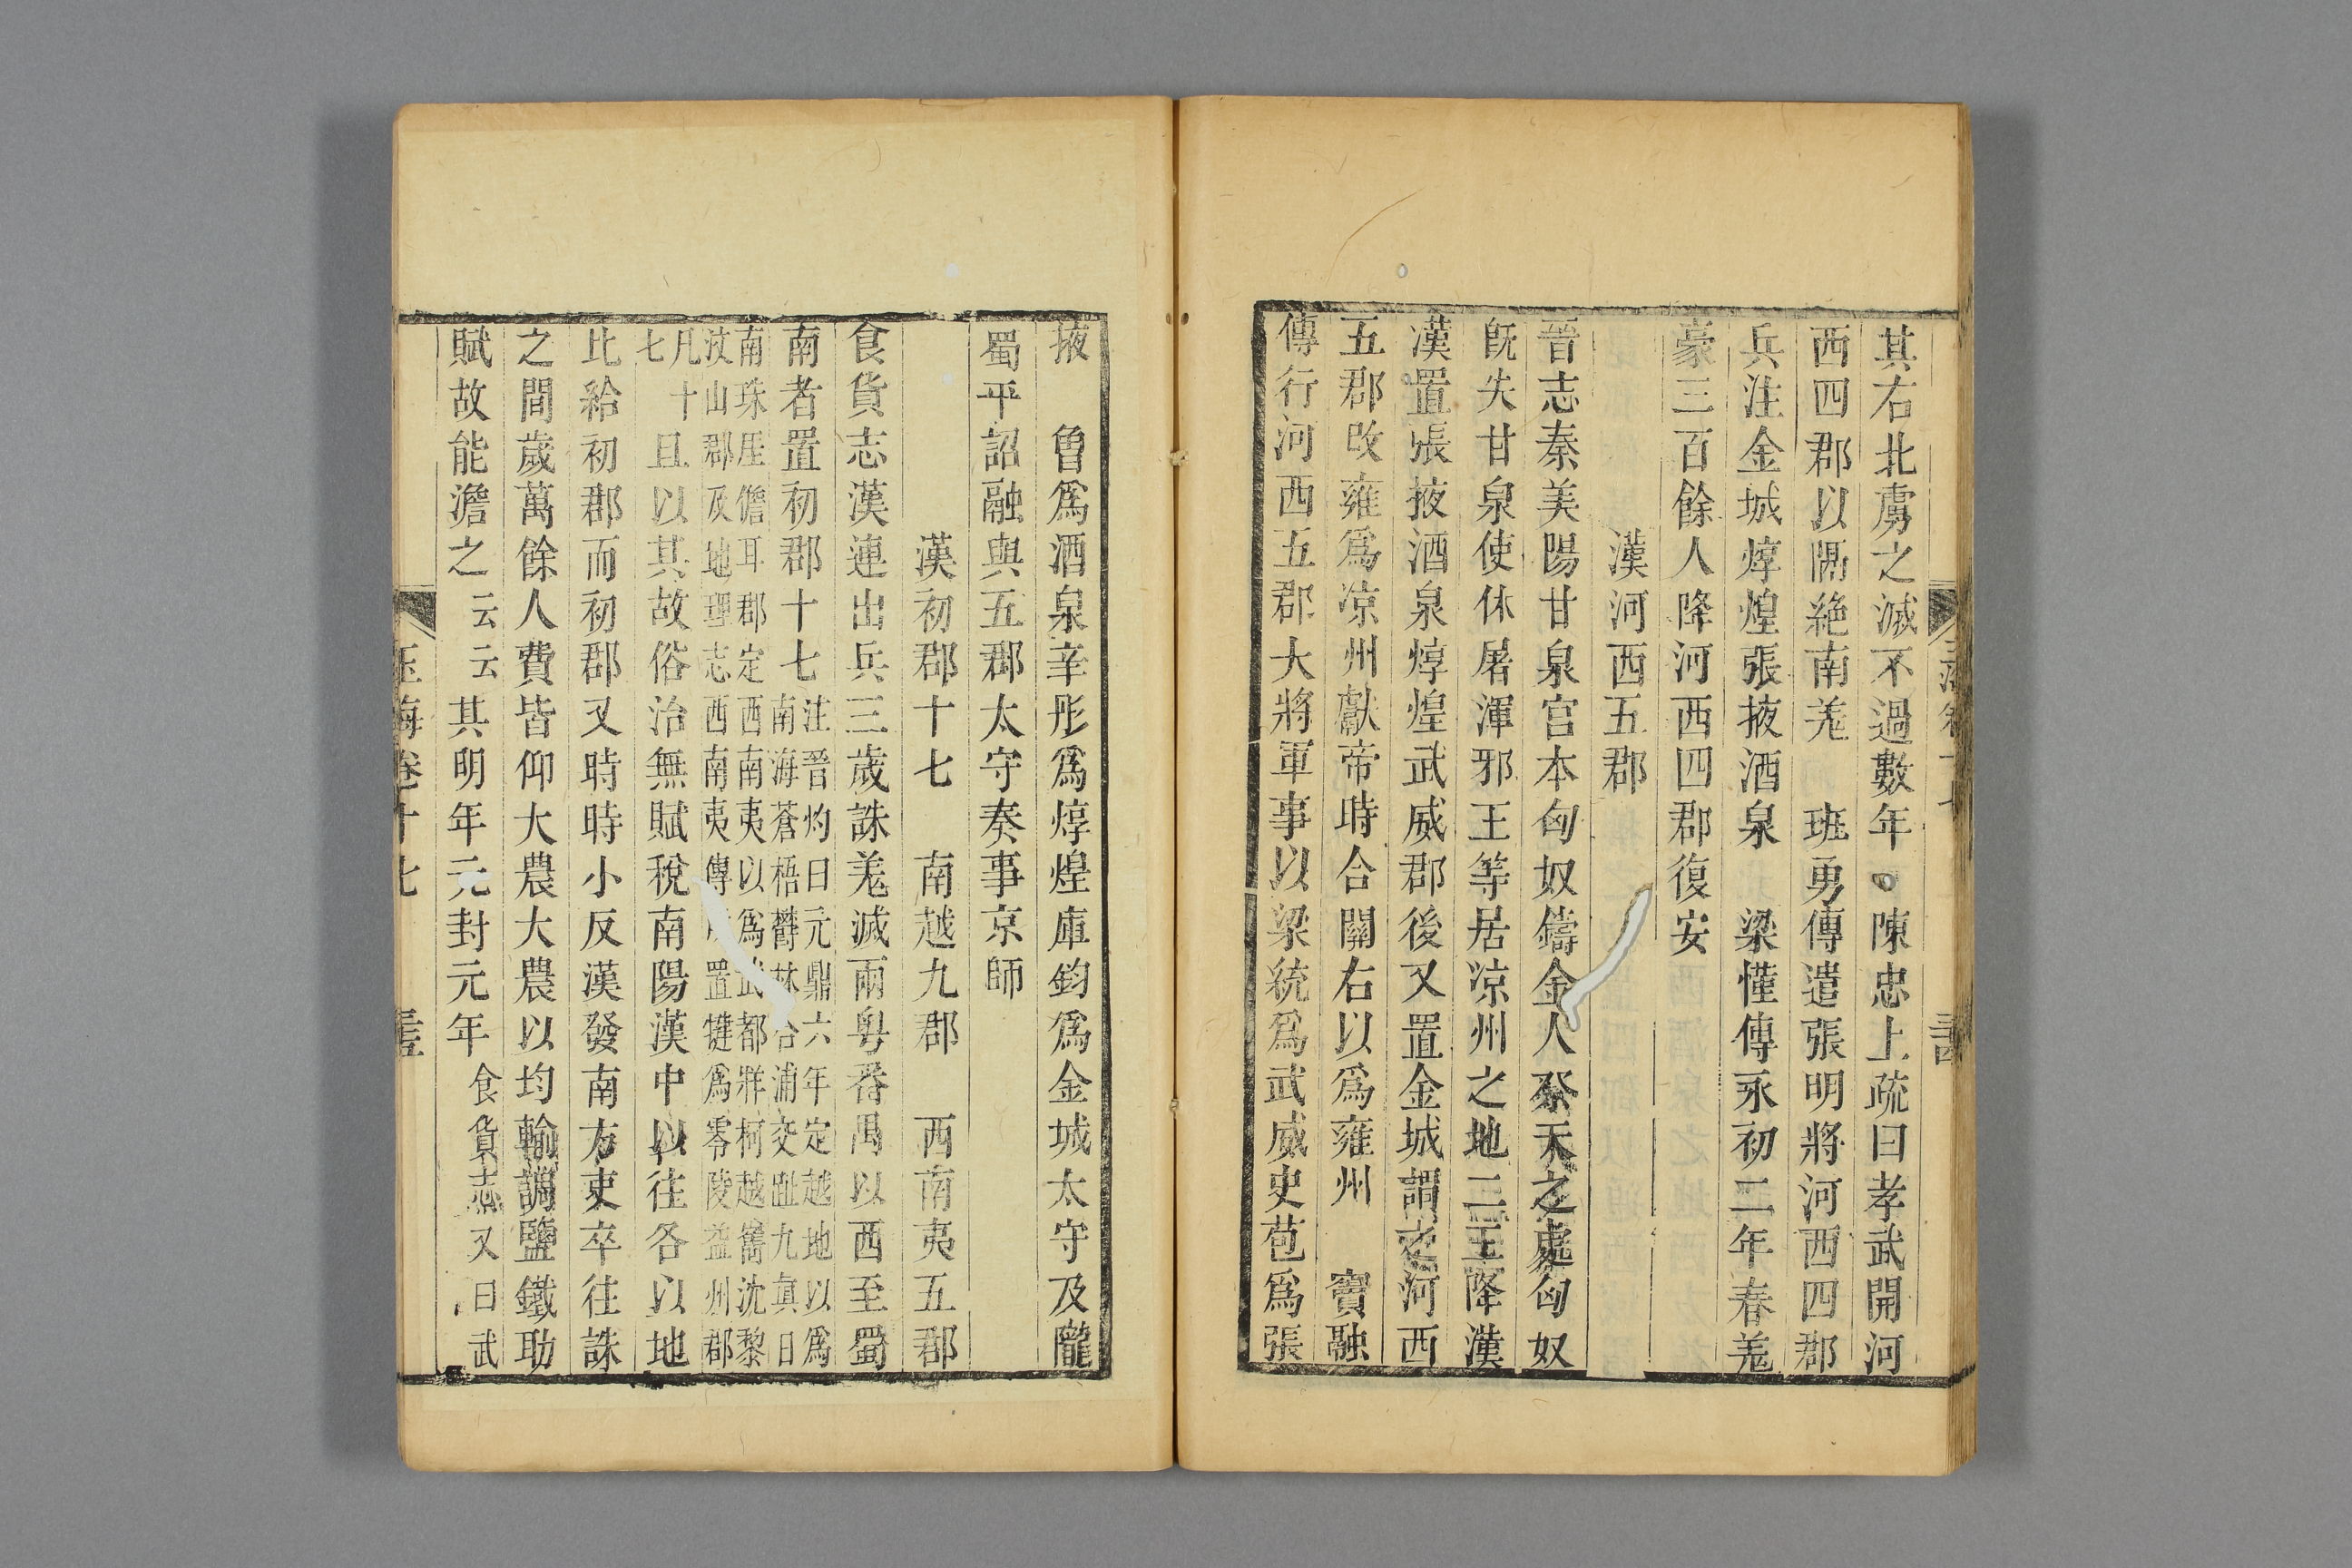 其右北虜之滅不過數年○陳忠上疏曰孝武開河
西四郡以隔絶南羌　班勇傳遣張明將河西四郡
兵注金城焞煌張掖酒泉　梁慬傳永初二年春羌
豪三百餘人降河西四郡復安
漢河西五郡
晉志秦美陽甘泉宮本匈奴鑄金人祭天之處匈奴
旣失甘泉使休屠渾邪王等居凉州之地二王降漢
漢置張掖酒泉焞煌武威郡後又置金城謂之河西
五郡改雍爲凉州獻帝時合關右以爲雍州　竇融
傳行河西五郡大將軍事以梁統爲武威史苞爲張
掖　曾爲酒泉辛彤爲焞煌庫鈞爲金城太守及隴
蜀平詔融與五郡太守奏事京師
漢初郡十七　南越九郡　西南夷五郡
食貨志漢連出兵三歲誅羌滅兩粤番禺以西至蜀
南者置初郡十七
注晉灼曰元鼎六年定越地以爲
南海蒼梧鬱林合浦交趾九眞日
南珠厓儋耳郡定西南夷以爲武都牂柯越巂沈黎
汶山郡及地理志西南夷傳置犍爲零陵益州郡
凡十
七
且以其故俗治無賦稅南陽漢中以往各以地
比給初郡而初郡又時時小反漢發南方吏卒往誅
之間歲萬餘人費皆仰大農大農以均輸調鹽鐵助
賦故能澹之云云其明年元封元年食貨志又曰武
玉海卷十七